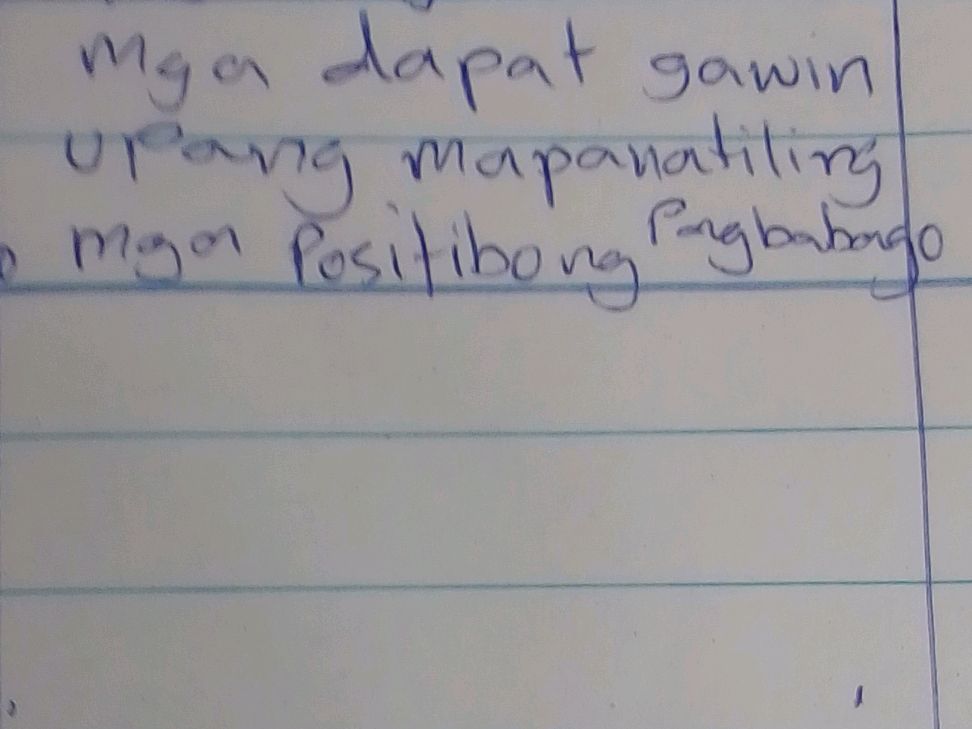 mga dapat gawin
upang mapanatiling
mga Positibong Pangbabago